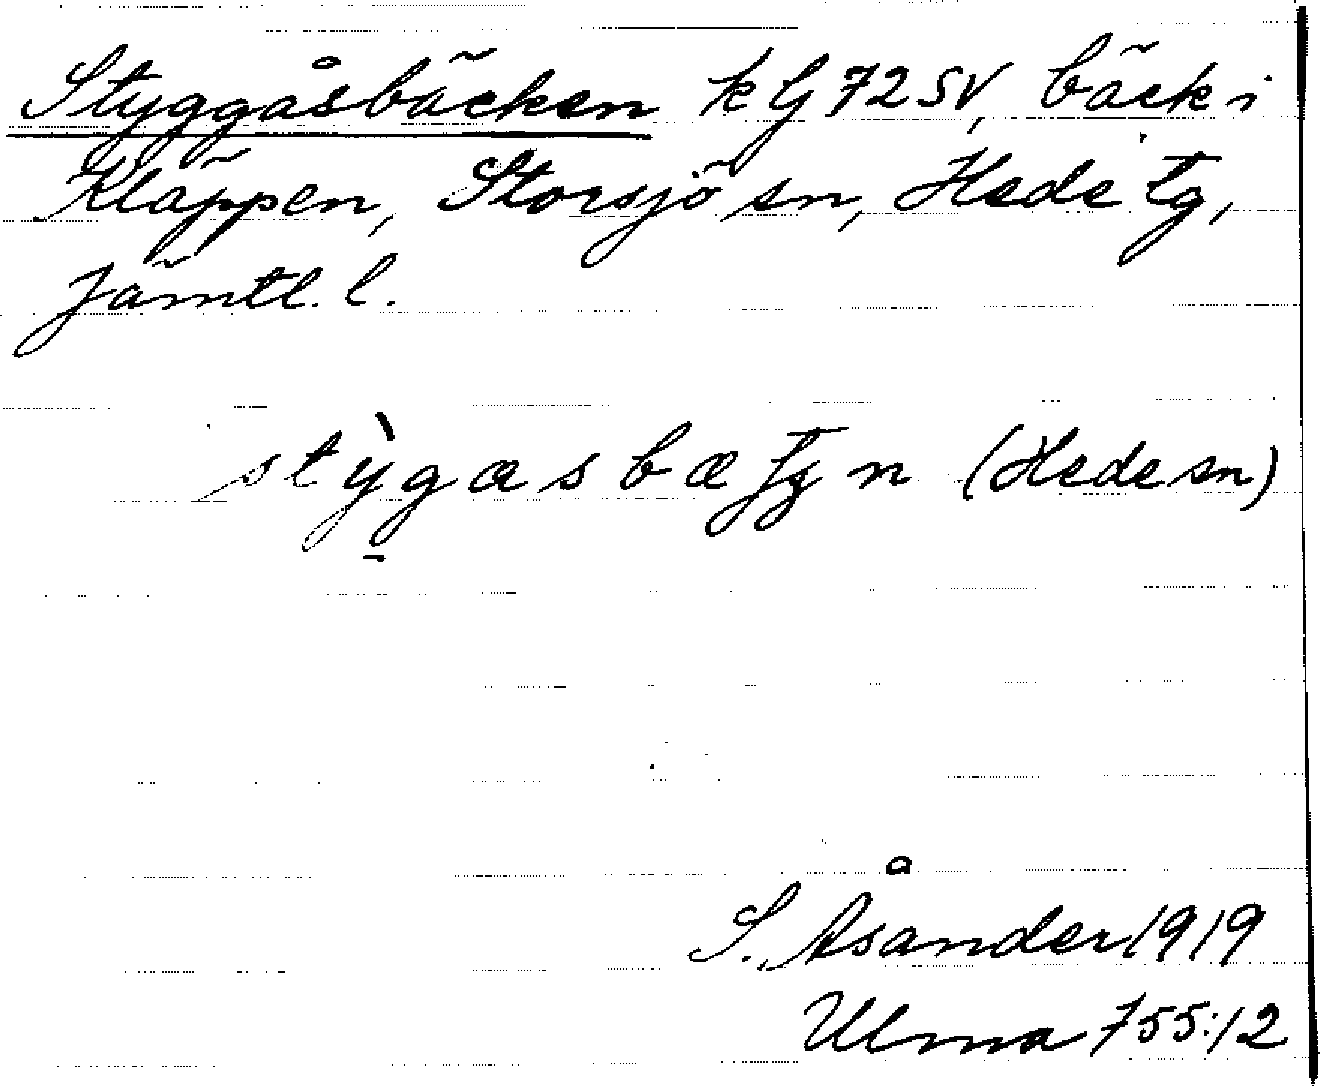 Styggåsbäcken kG72SV, bäck i
Kläppen, Storsjö sn, Hede tg,
Jämtl. l.
stỳgasbæ n (Hede sn)
S. Åsander 1919
Ulma 755:12